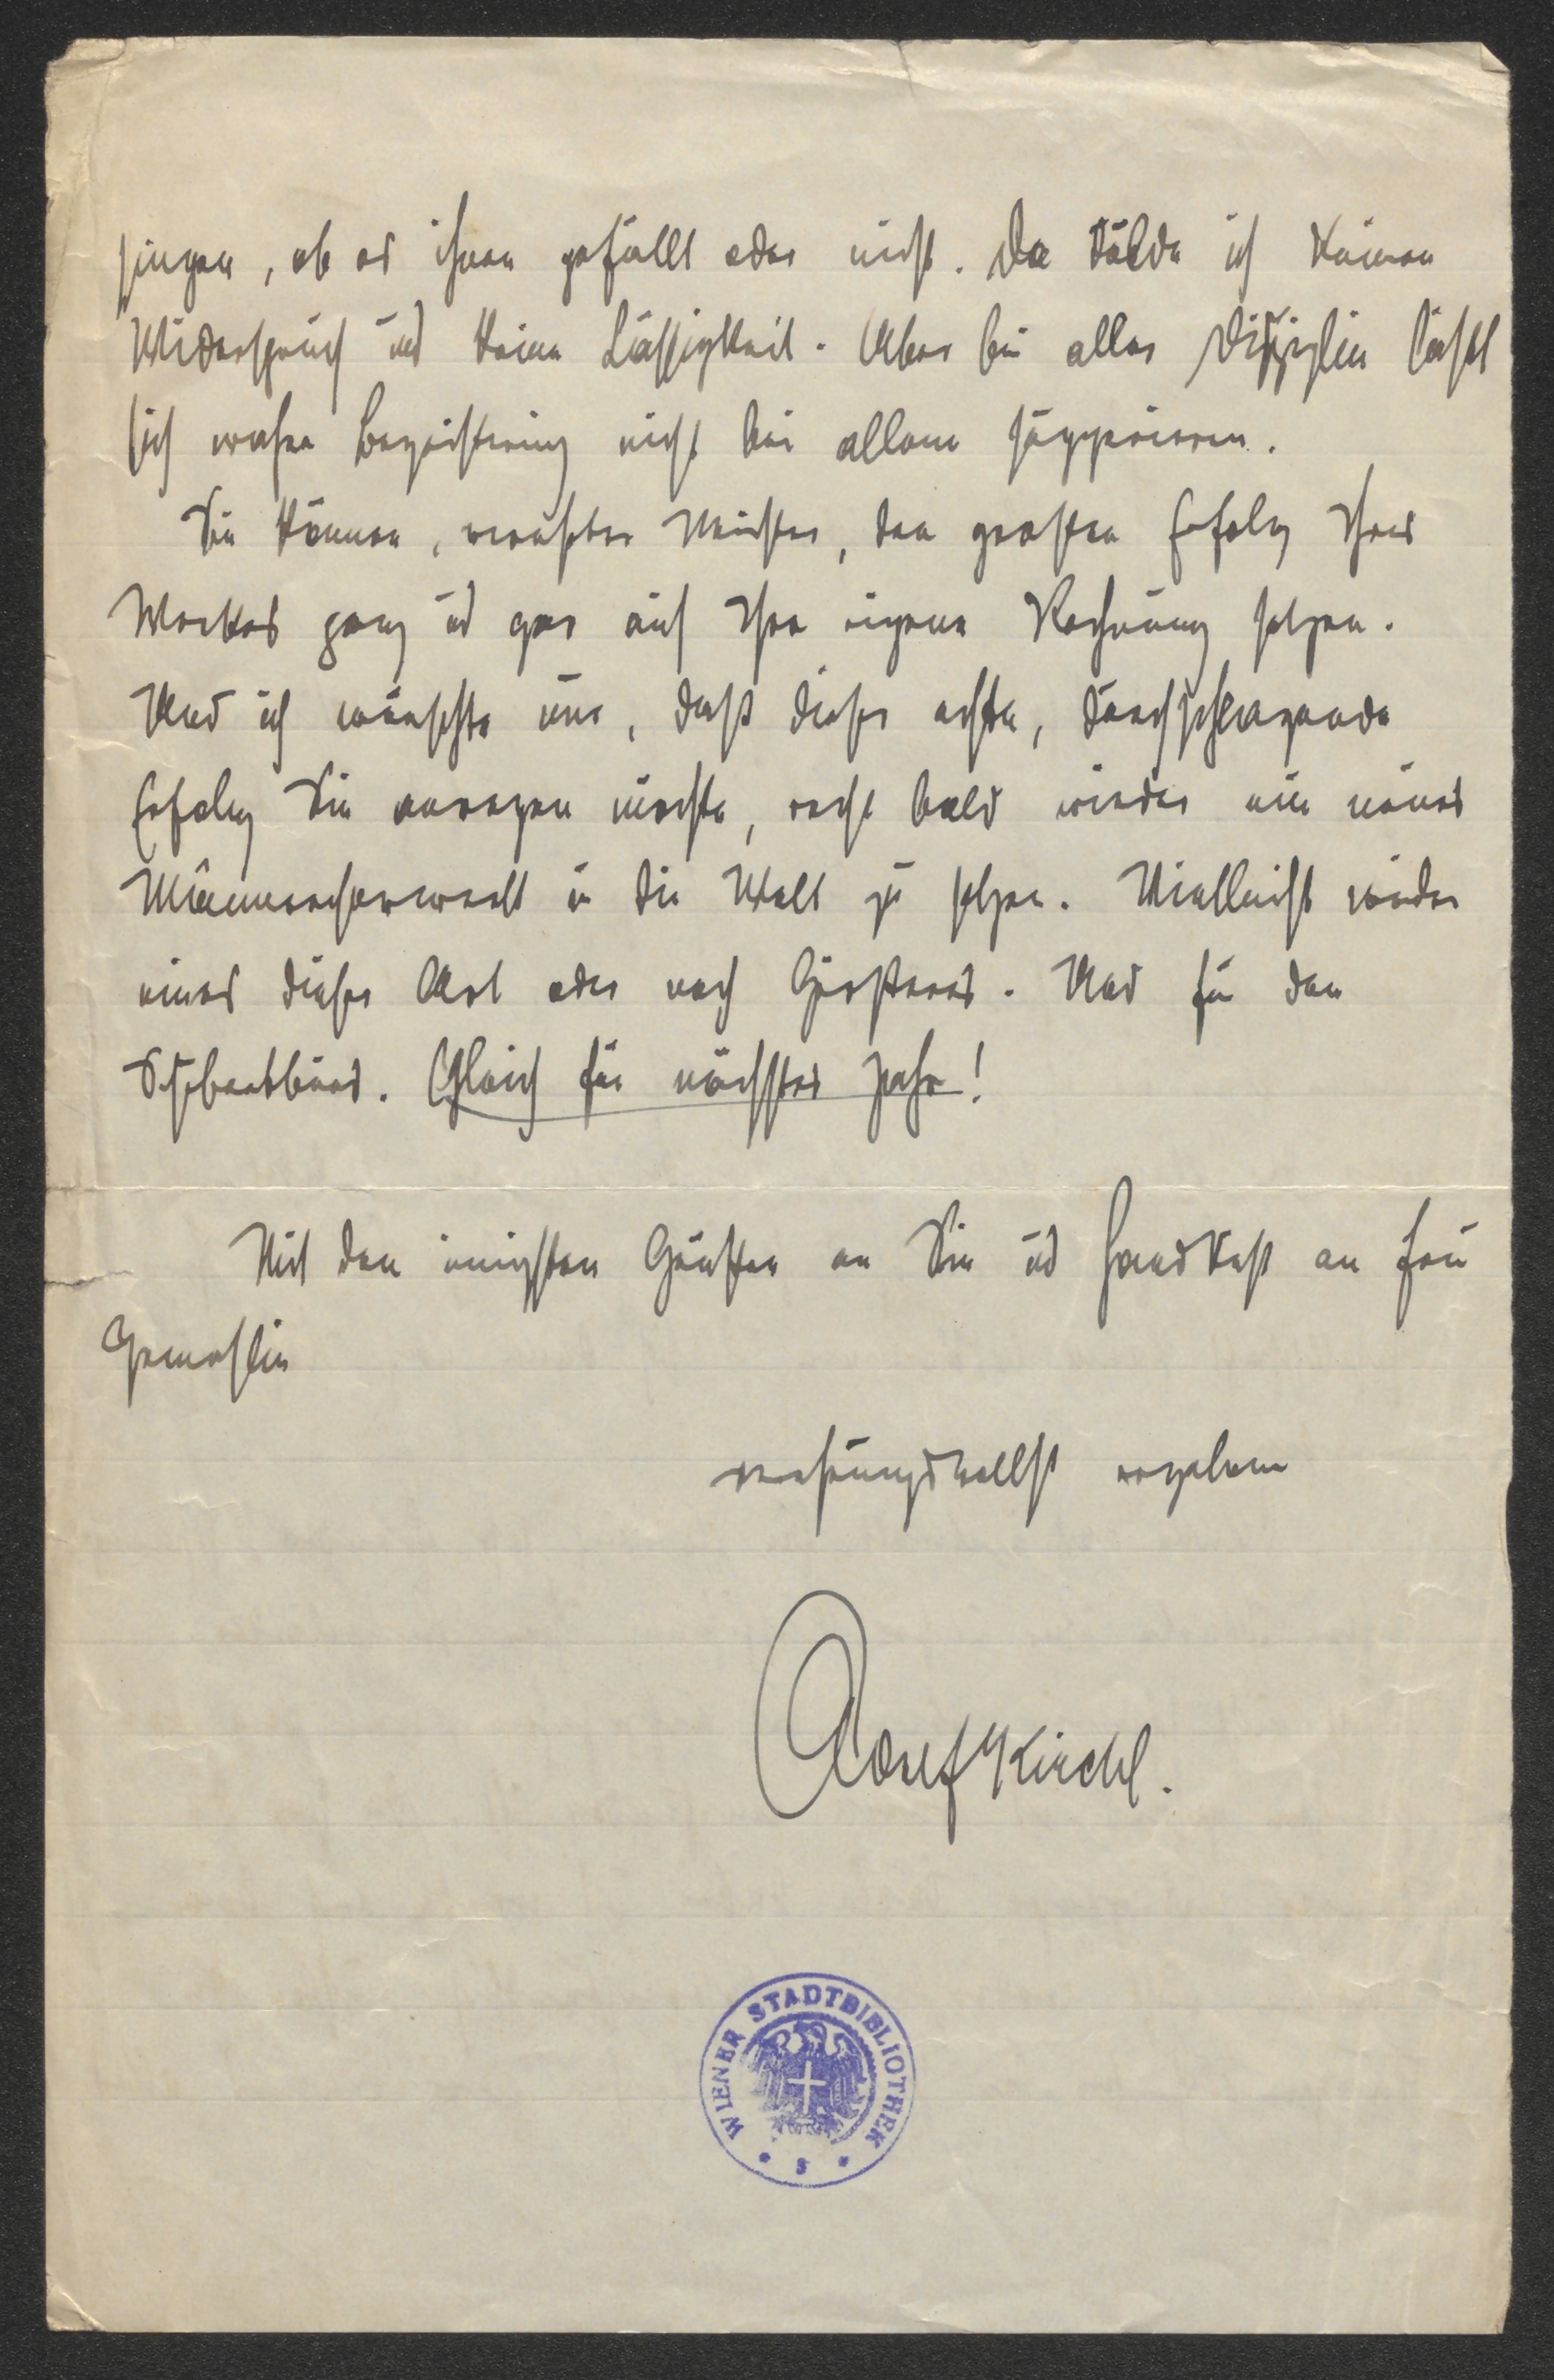 singen, ob es ihnen gefällt oder nicht. Da dulde ich keinen
Widerspruch und keine Lässigkeit. Aber bei aller Disziplin läßt
sich wahre Begeisterung nicht bei allem
Sie können, verehrter Meister, den grossen Erfolg Ihres
Werkes ganz und gar auf Ihre eigene Rechnung setzen.
Und ich wünschte nur, daß dieser echte, durchschlagende
Erfolg Sie anregen möchte, recht bald wieder ein neues
Männerchorwerk in die Welt zu setzen. Vielleicht wieder
eines dieser Art oder noch Größeres. Und für den
Schubertbund. Gleich für nächstes Jahr!
Mit den innigsten Grüßen an Sie und Handkuß an Frau
Gemahlin
verehrungsvollst ergebener
Adolf Kirchl.
WIENER STADTBIBLIOTHEK